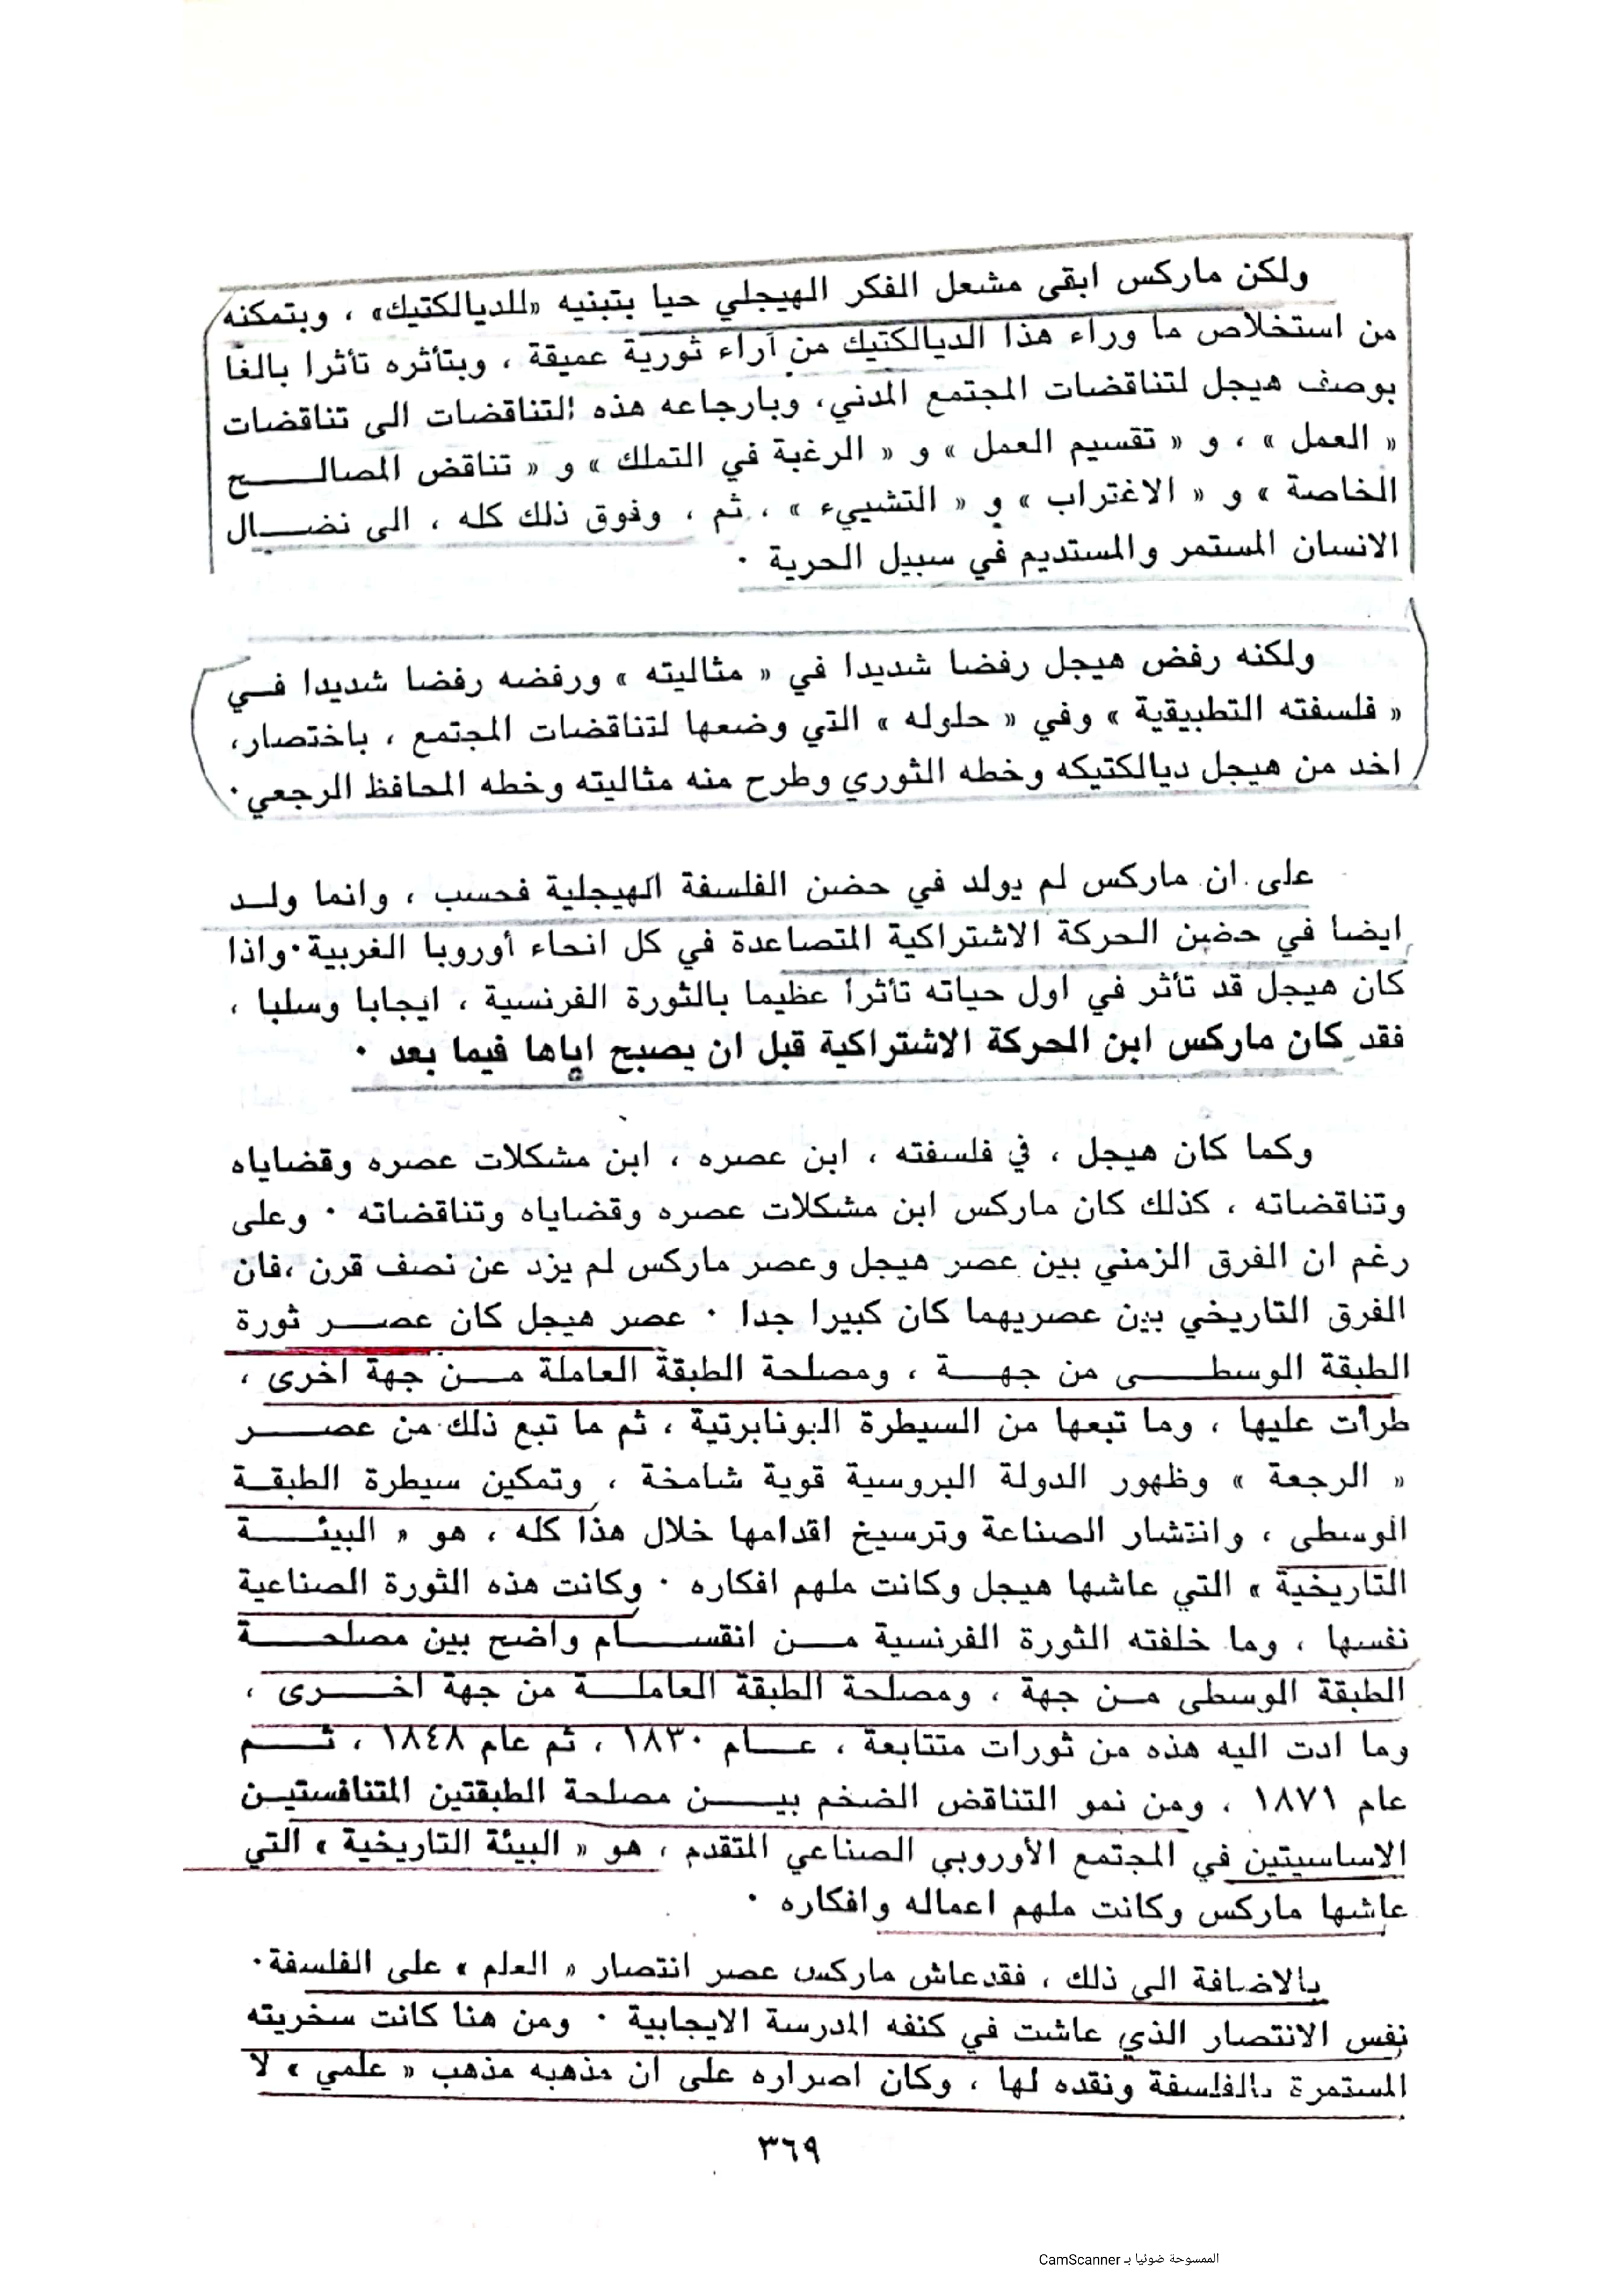 ولكن ماركس ابقى مشعل الفكر الهيجلي حيا بتبنيه «للديالكتيك» ، وبتمكنه
من استخلاص ما وراء هذا الديالكتيك من آراء ثورية عميقة ، وبتأثره تأثرا بالغا
بوصف هيجل لتناقضات المجتمع المدني، وبارجاعه هذه التناقضات الى تناقضات
« العمل » ، و « تقسيم العمل » و « الرغبة في التملك » و « تناقض المصالـــــح
الخاصة » و « الاغتراب » و « التشييء » ، ثم ، وفوق ذلك كله ، الى نضـــال
الانسان المستمر والمستديم في سبيل الحرية ٠
ولكنه رفض هيجل رفضا شديدا في « مثاليته » ورفضه رفضا شديدا فـــي
« فلسفته التطبيقية » وفي « حلوله » التي وضعها لتناقضات المجتمع ، باختصار،
اخد من هيجل ديالكتيكه وخطه الثوري وطرح منه مثاليته وخطه المحافظ الرجعي٠
على ان ماركس لم يولد في حضن الفلسفة الهيجلية فحسب ، وانما ولـــد
ايضا في حضن الحركة الاشتراكية المتصاعدة في كل انحاء أوروبا الغربية٠واذا
كان هيجل قد تأثر في اول حياته تأثرا عظيما بالثورة الفرنسية ، ايجابا وسلبا ،
فقد كان ماركس ابن الحركة الاشتراكية قبل ان يصبح اباها فيما بعد ٠
وكما كان هيجل ، في فلسفته ، ابن عصره ، ابن مشكلات عصره وقضاياه
وتناقضاته ، كذلك كان ماركس ابن مشكلات عصره وقضاياه وتناقضاته ٠ وعلى
رغم ان الفرق الزمني بين عصر هيجل وعصر ماركس لم يزد عن نصف قرن ،فان
الفرق التاريخي بين عصريهما كان كبيرا جدا ٠ عصر هيجل كان عصـــر ثورة
الطبقة الوسطـــــى من جهـــة ، ومصلحة الطبقة العاملة مـــن جهة اخرى ،
طرأت عليها ، وما تبعها من السيطرة البونابرتية ، ثم ما تبع ذلك من عصـــــر
« الرجعة » وظهور الدولة البروسية قوية شامخة ، وتمكين سيطرة الطبقــة
الوسطى ، وانتشار الصناعة وترسيخ اقدامها خلال هذا كله ، هو « البيئـــــة
التاريخية » التي عاشها هيجل وكانت ملهم افكاره ٠ وكانت هذه الثورة الصناعية
نفسها ، وما خلفته الثورة الفرنسية مـــن انقســـــام واضح بين مصلحـــــة
الطبقة الوسطى مـــن جهة ، ومصلحة الطبقة العاملـــة من جهة اخـــــرى ،
وما ادت اليه هذه من ثورات متتابعة ، عـــام ١٨٣٠ ، ثم عام ١٨٤٨ ، ثـــــم
عام ١٨٧١ ، ومن نمو التناقض الضخم بيـــــن مصلحة الطبقتين المتنافستيـــن
الاساسيتين في المجتمع الأوروبي الصناعي المتقدم ، هو « البيئة التاريخية » التي
عاشها ماركس وكانت ملهم اعماله وافكاره ٠
بالاضافة الى ذلك ، فقدعاش ماركس عصر انتصار « العلم » على الفلسفة٠
نفس الانتصار الذي عاشت في كنفه المدرسة الايجابية ٠ ومن هنا كانت سخريته
المستمرة بالفلسفة ونقده لها ، وكان اصراره على ان مذهبه مذهب « علمي » لا
٣٦٩
الممسوحة ضوئيا بـ CamScanner